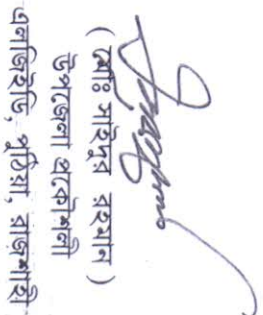 ( মোঃ সাইদুর রহমান )
উপজেলা প্রকৌশলী
এলজিইডি, পুঠিয়া, রাজশাহী